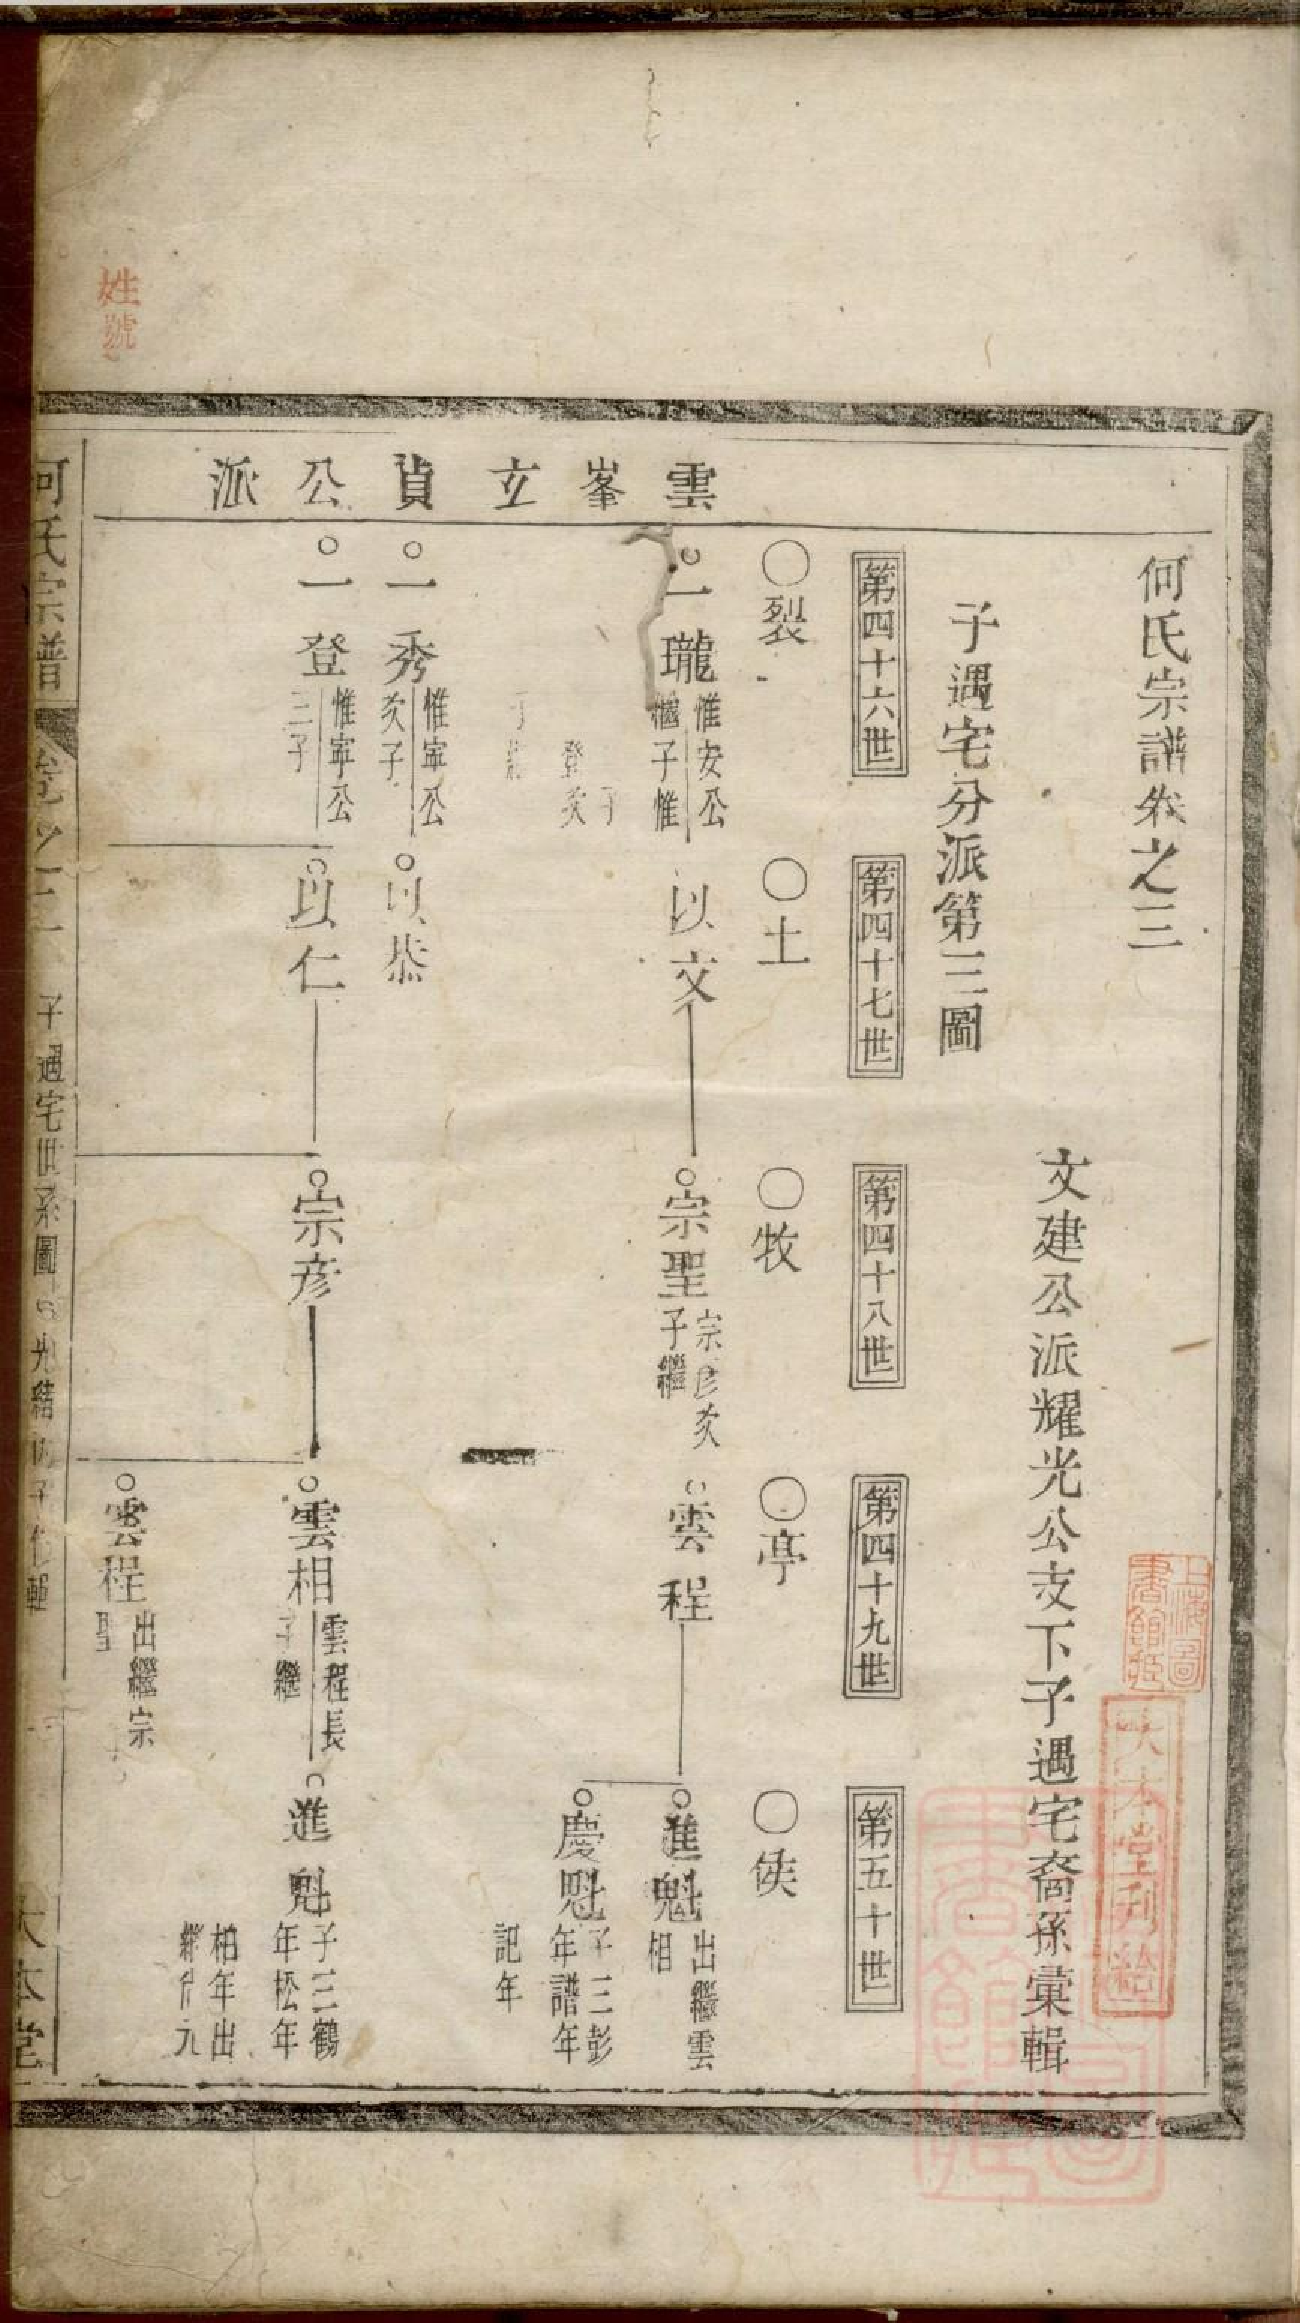 何氏宗譜卷之三
文建公派耀光公支下子遇宅裔孫彙輯
子遇宅分派第三圖
第四十六世
第四十七世
第四十八世
第四十九世
第五十世
〇裂
〇土
〇牧
〇亭
〇侯
雲峯立貞公派
一瓏
惟安公
子惟
登次
子
以文
宗聖
宗彦次
子繼
雲程
進魁
出繼雲
相
慶魁
子三彭
年譜年
記年
一秀
惟寧公
次子
以恭
一登
惟寧公
三子
以仁
宗彦
雲相
雲程長
子繼
進魁
子三鶴
年松年
柏年出
雲程
出繼宗
聖
何氏宗普
卷之三
子遇宅世系圖
光緒丙子
輯
大本堂
大本堂刊給
上海圖書館藏
姓號